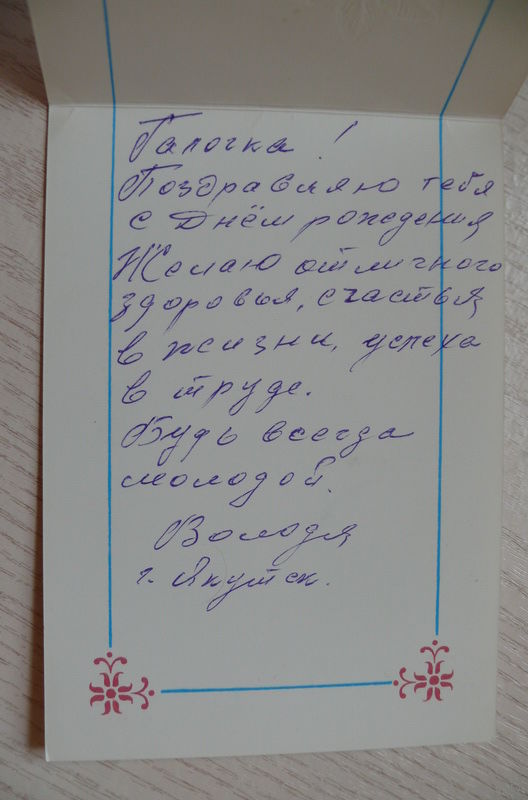 Галочка!
Поздравляю тебя
с Днём рождения
Желаю отличного
здоровья, счастья
в жизни, успеха
в труде.
Будь всегда
молодой.
Володя
г. Якутск.